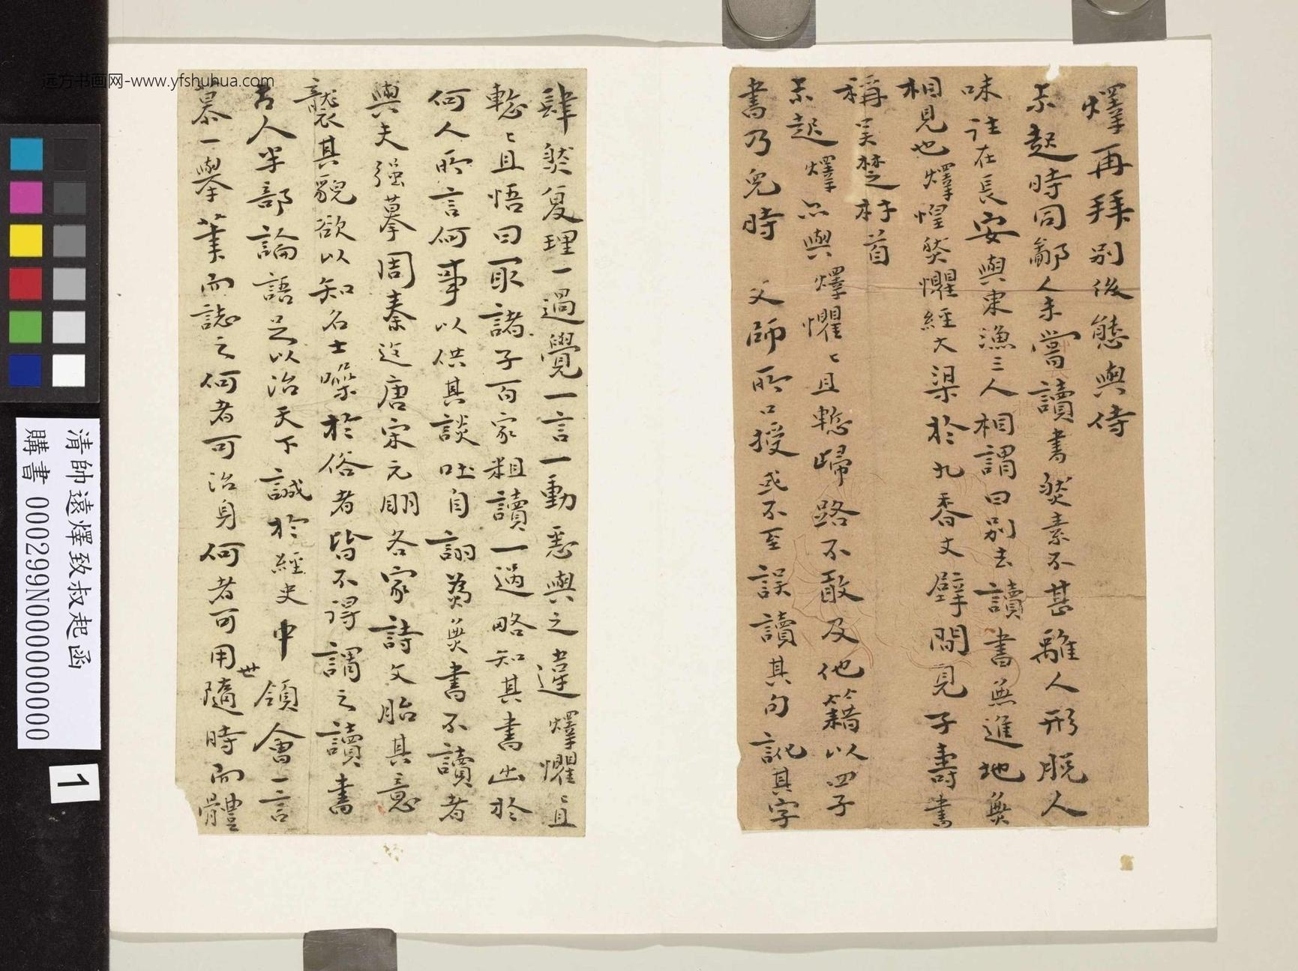 燡再拜別後態與侍
未起時同鄰人未嘗讀書然素不甚離人形脫人
味往在長安與東漁三人相謂曰別去讀書無進地無
相見也燡惶然懼經大渠於九香丈壁間見子壽書
稱吴楚之材首
未起燡亦與燡懼懼且慙歸路不敢及他籍以四子
書乃兒時 父師所口授或不至誤讀其句訛其字
肆然复理一過覺一言一動悉與之違燡懼懼且
慙慙且悟曰取諸子百家粗讀一過略知其書出於
何人所言何事以供其談吐自詡為無書不讀者
與夫强摹周秦迄唐宋元明各家詩文貽其意
襲其貌欲以知名士噪於俗者皆不得謂之讀書
古人半部論語足以治天下誠於經史中領會一言
慕一舉筆而誌之何者可治身何者可用世隨時而體
远方书画网-www.yfshuhua.com
清帥遠燡致叔起函
購書 000299N000000000
1